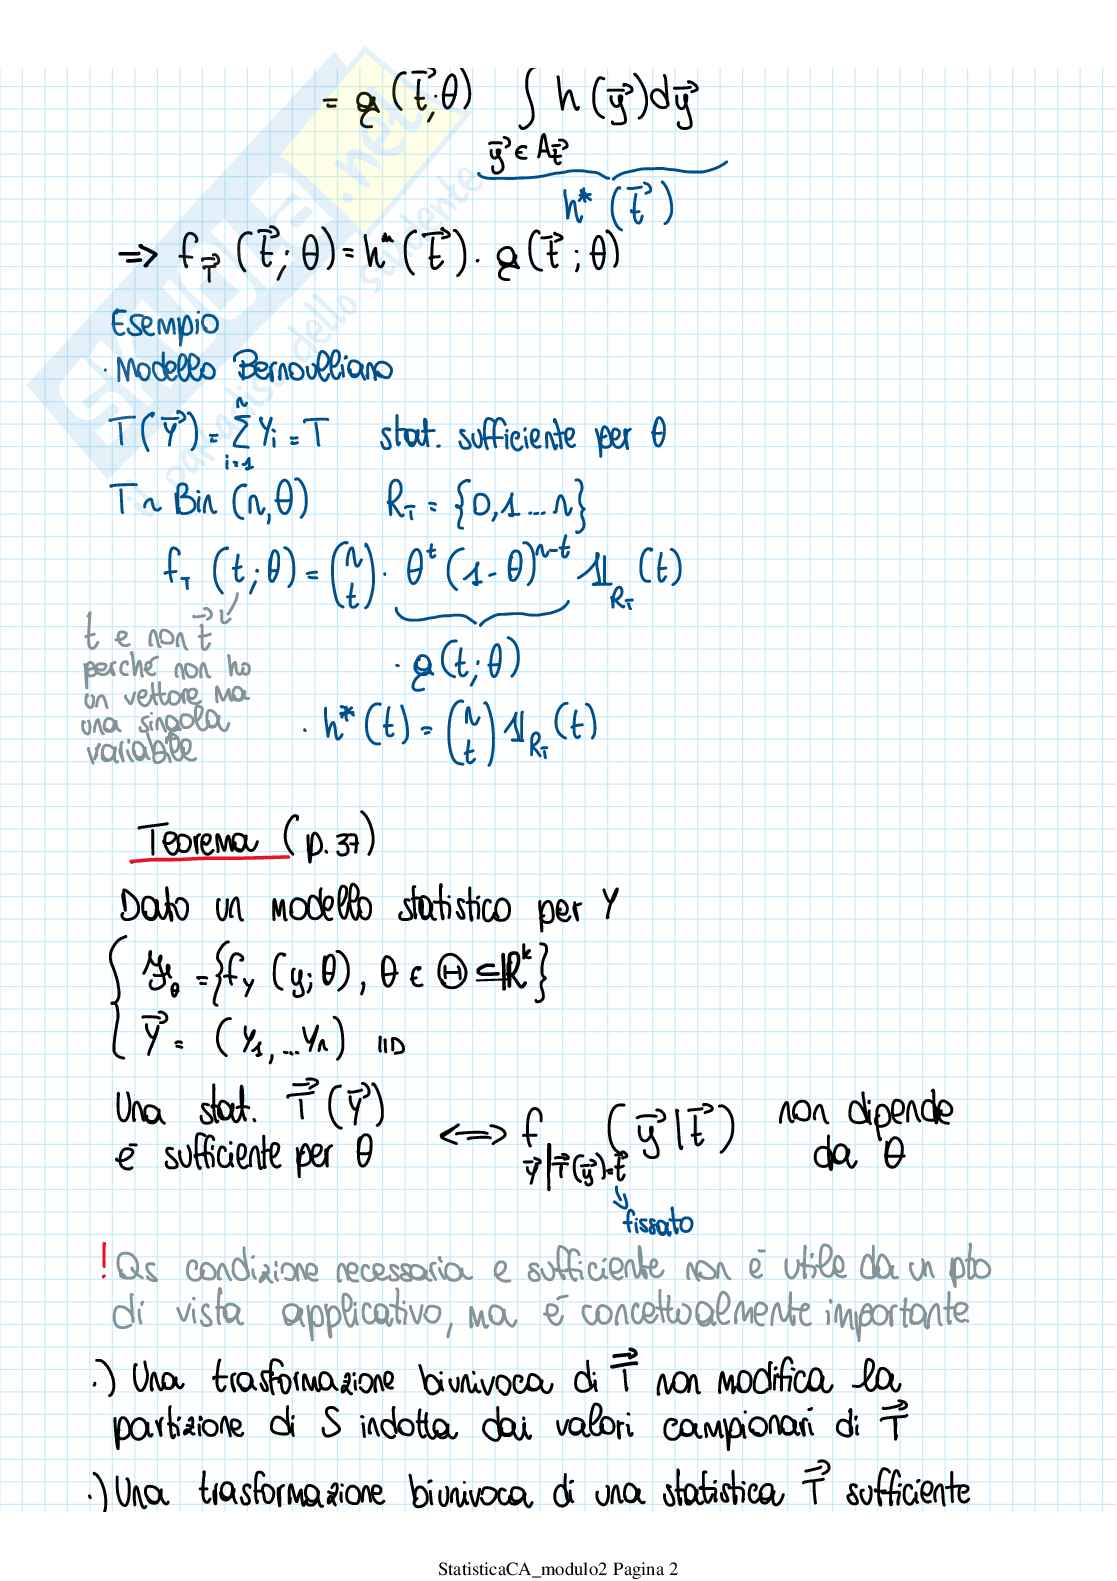 = g(t⃗;θ) ∫ h(y⃗)dy⃗
y⃗ ∈ A_t⃗
h*(t⃗)
=> f_T⃗ (t⃗;θ) = h*(t⃗) · g(t⃗;θ)
Esempio
· Modello Bernoulliano
T(Y⃗) = Σ_{i=1}^{n} Yi = T stat. sufficiente per θ
T ~ Bin (n,θ) R_T = {0,1...n}
f_T (t;θ) = (n t) · θ^t (1-θ)^{n-t} 𝟙_{R_T} (t)
t e non t⃗
perché non ho
un vettore ma
una singola
variabile
· g(t;θ)
· h*(t) = (n t) 𝟙_{R_T} (t)
Teorema (p.37)
Dato un modello statistico per Y
{ ℱ_θ = {f_Y (y;θ), θ ∈ Θ ⊆ ℝ^k}
Y⃗ = (Y1,...Yn) IID
Una stat. T⃗(Y⃗)
è sufficiente per θ <=> f_{Y⃗|T⃗(y⃗)=t⃗} (y⃗|t⃗) non dipende
da θ
fissato
! Qs condizione necessaria e sufficiente non è utile da un pto
di vista applicativo, ma è concettualmente importante
·) Una trasformazione biunivoca di T⃗ non modifica la
partizione di S indotta dai valori campionari di T⃗
·) Una trasformazione biunivoca di una statistica T⃗ sufficiente
StatisticaCA_modulo2 Pagina 2